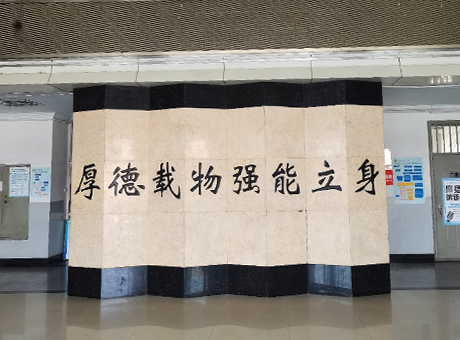 厚德载物强能立身